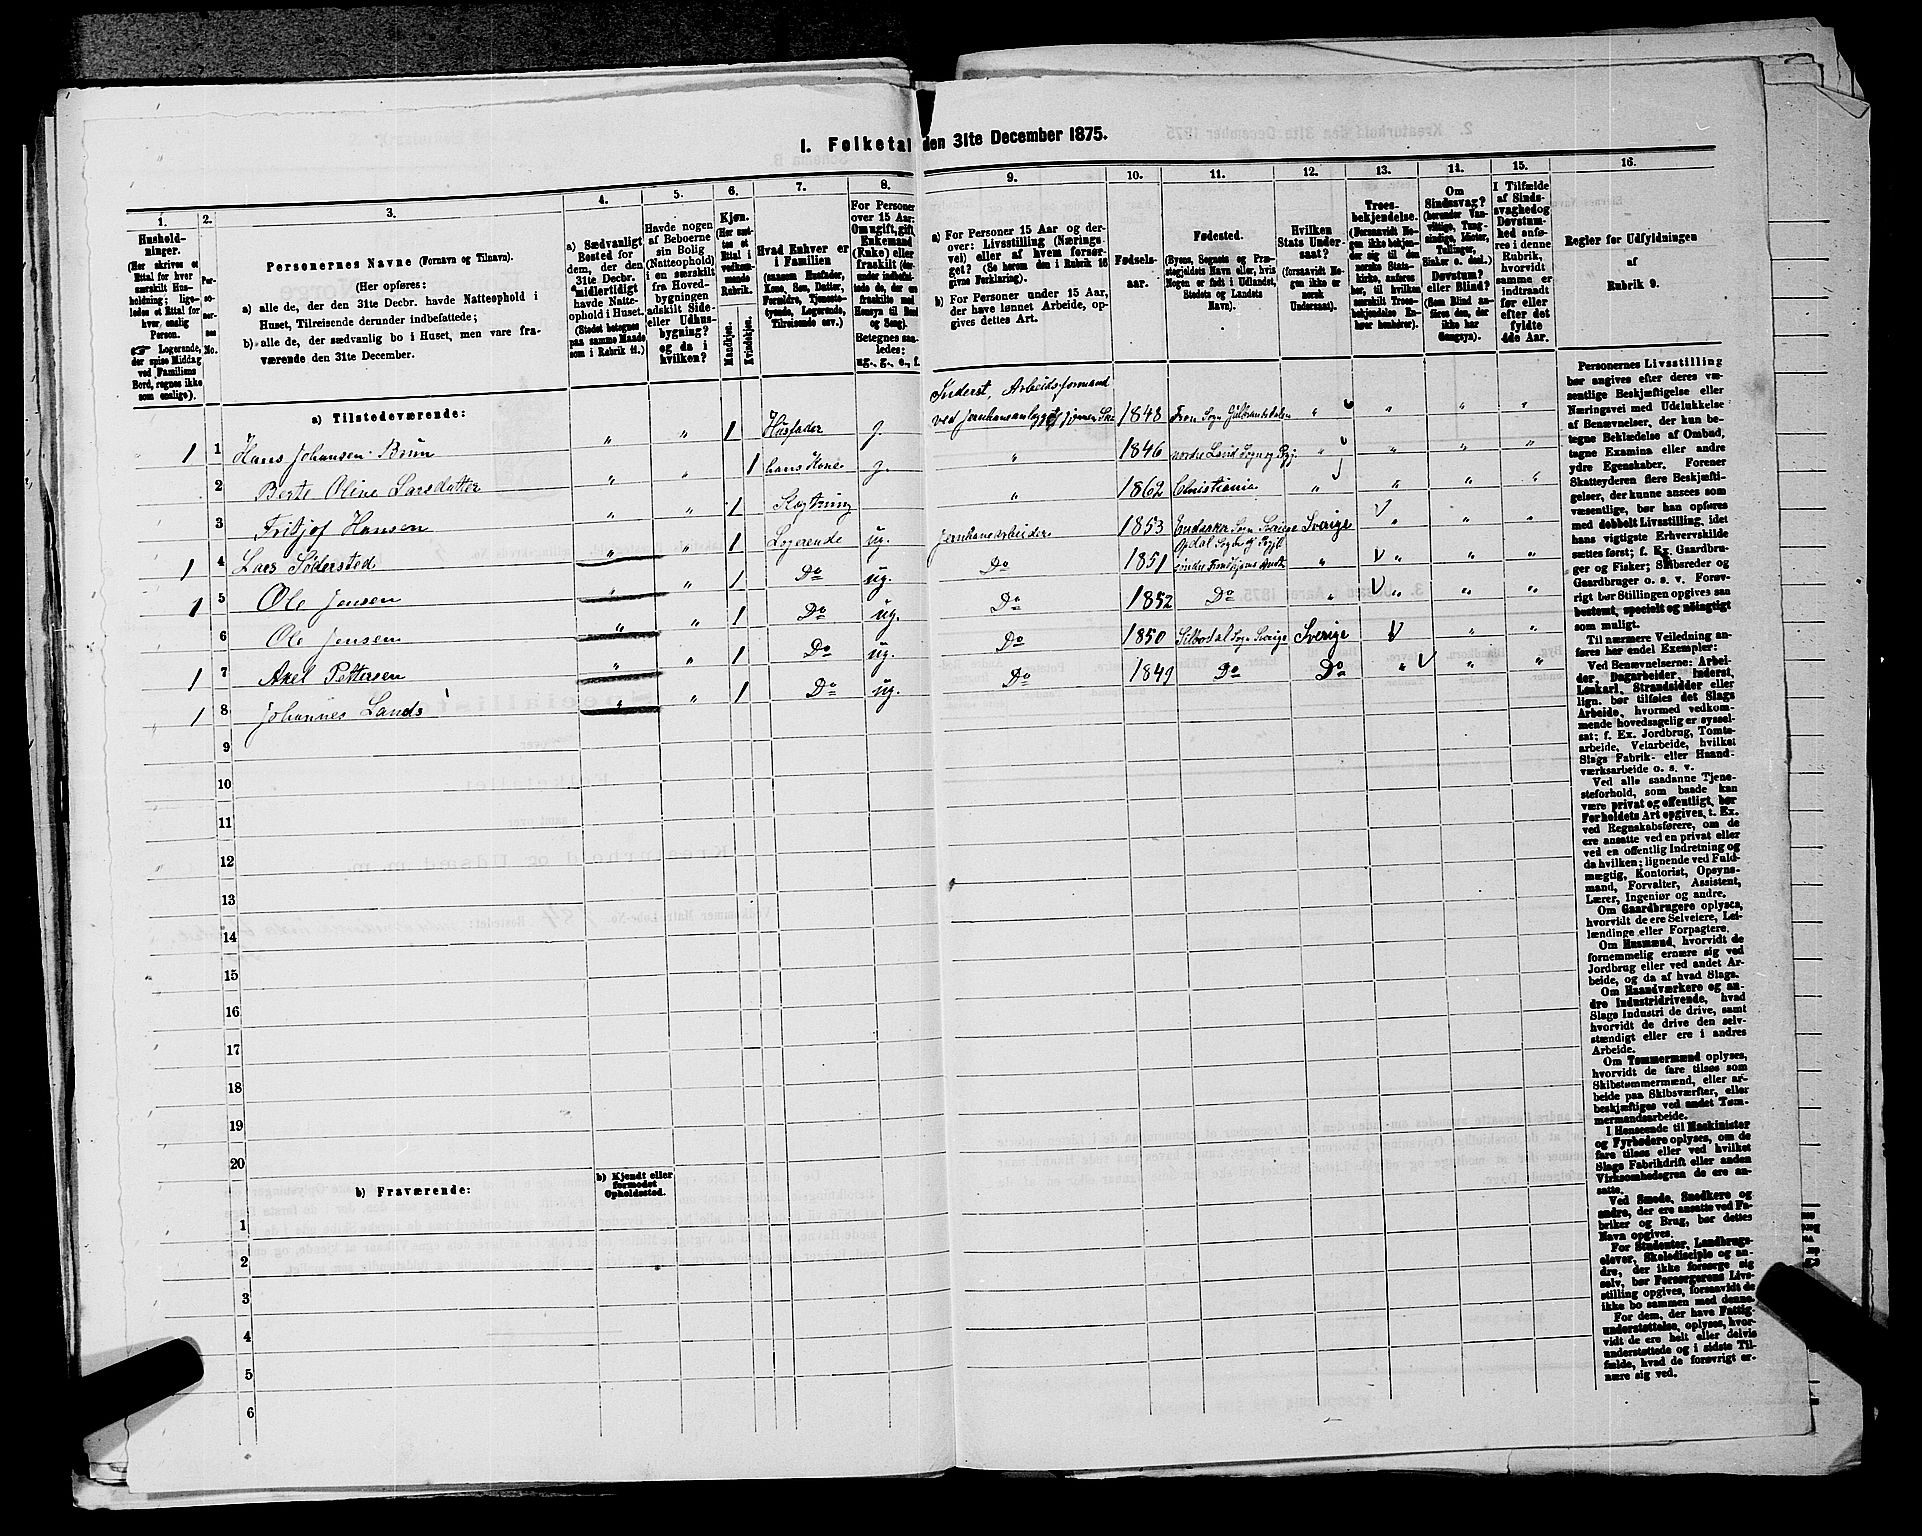 1. Folketal den 31te December 1875.
1. 2. 3. 4. 5. 6. 7. 8. 9. 10. 11. 12. 13. 14. 15. 16.
Hushold-
ninger.
(Her skrives et
Ettal for hver
særskilt Hus-
holdning; lige-
ledes et Ettal for
hver enslig
Person.
☞ Logerende,
der spise Middag
ved Familiens
Bord, regnes ikke
som enslige).
Per-
so-
ner-
nes
No.
Personernes Navne (Fornavn og Tilnavn).
(Her opføres:
a) alle de, der den 31te Decbr. havde Natteophold i
Huset, Tilreisende derunder indbefattede;
b) alle de, der sædvanlig bo i Huset, men vare fra-
værende den 31te December.
a) Sædvanligt
Bosted for
dem, der den
31te Decbr.
midlertidigt
havde Natte-
ophold i Huset.
(Stedet betegnes
paa samme Maade
som i Rubrik 11.)
Havde nogen
af Beboerne
sin Bolig
(Natteophold)
i en særskilt
fra Hoved-
bygningen
adskilt Side-
eller Udhus-
bygning?
og da i
hvilken?
Kjøn.
(Her sæt-
tes et
Ettal i
vedkom-
mende
Rubrik.
Mandkjøn.
Kvindekjøn.
Hvad Enhver er
i Familien
(saasom Husfader,
Kone, Søn, Datter,
Forældre, Tjeneste-
tyende, Logerende,
Tilreisende osv.)
For Personer
over 15 Aar:
Om ugift, gift,
Enkemand
(Enke) eller
fraskilt (der-
under indbefat-
tede de, der ere
fraskilte med
Hensyn til Bord
og Seng).
Betegnes saa-
ledes:
ug., g., e., f.
a) For Personer 15 Aar og der-
over: Livsstilling (Nærings-
vei) eller af hvem forsør-
get? (Se herom den i Rubrik 16
givne Forklaring).
b) For Personer under 15 Aar,
der have lønnet Arbeide, op-
gives dettes Art.
Fødsels-
aar.
Fødested.
(Byens, Sognets og Præ-
stegjeldets Navn eller, hvis
Nogen er født i Udlandet,
Stedets og Landets
Navn).
Hvilken
Stats Under-
saat?
(forsaavidt No-
gen ikke er
norsk
Undersaat).
Troes-
bekjendelse.
(Forsaavidt No-
gen ikke bekjen-
der sig til den
norske Stats-
kirke, anføres
her, til hvilken
Troesbekjendelse En-
hver henhører).
Om
Sindssvag?
(herunder Van-
vittige, Tung-
sindige, Idioter,
Tullinger,
Sinker o. desl.)
Døvstum?
eller Blind?
(Som Blind an-
føres den, der
ikke har
Gangsyn).
I Tilfælde
af Sinds-
svaghed og
Døvstum-
hed anfø-
res i denne
Rubrik,
hvorvidt
samme er
indtraadt
før eller
efter det
fyldte
4de Aar.
Regler for Udfyldningen
af
Rubrik 9.
a) Tilstedeværende:
1 1 Hans Johansen Brun " " 1 Husfader g. Inderst, Arbeidsformand
ved Jernbaneanlægget 1848 Fron Sogn Gulbrandsdalen " " " "
2 Berte Oline Larsdatter " " 1 hans Kone g. " 1846 nordre Land Sogn og Prgj. " " " "
3 Fritjof Hansen " " 1 " 1862 Christiania " " " "
1 4 Lars Södersted " " 1 Logerende ug. Jernbanearbeider 1853 Sogn Sverige Sverige " " "
1 5 Ole Jensen " " 1 Do ug. Do 1851 Opdal Sogn og Prgjl " " " "
6 Ole Jensen " " 1 Do ug. Do 1852 Do " " " "
1 7 Axel Pettersen " " 1 Do ug. Do 1850 Silbodal Sogn Sverige Sverige " "
1 8 Johannes Lands " " 1 Do ug. Do 1849 Do Do " " "
9
10
11
12
13
14
15
16
17
18
19
20
b) Fraværende:
b) Kjendt eller
formodet
Opholdssted.
1
2
3
4
5
6
Personernes Livsstilling
bør angives efter deres væ-
sentlige Beskjæftigelse eller
Næringsvei med Udelukkelse
af Benævnelser, der kun be-
tegne Beklædelse af Ombud,
tagne Examina eller andre
ydre Egenskaber. Forener
Skatteyderen flere Beskjæfti-
gelser, der kunne ansees som
væsentlige, bør han opføres
med dobbelt Livsstilling, idet
hans vigtigste Erhvervskilde
sættes først; f. Ex. Gaardbru-
ger og Fisker; Skibsreder og
Gaardbruger o. s. v. Forøv-
rigt bør Stillingen opgives saa
bestemt, specielt og nøiagtigt
som muligt.
Til nærmere Veiledning an-
føres her endel Exempler:
Ved Benævnelserne: Arbei-
der, Dagarbeider, Inderst,
Løskarl, Strandsidder eller
lign. bør tilføies det Slags
Arbeide, hvormed vedkom-
mende hovedsagelig er syssel-
sat; f. Ex. Jordbrug, Tomte-
arbeide, Veiarbeide, hvilket
Slags Fabrik- eller Haand-
værksarbeide o. s. v.
Ved alle saadanne Tjene-
steforhold, som baade kan
være privat og offentligt, bør
Forholdets Art opgives, t. Ex.
ved Regnskabsførere, om de
ere ansatte ved en privat eller
ved en offentlig Indretning og
da hvilken; lignende ved Fuld-
mægtig, Kontorist, Opsyns-
mand, Forvalter, Assistent,
Lærer, Ingeniør og andre.
Om Gaardbrugere oplyses,
hvorvidt de ere Selveiere, Lei-
lændinge eller Forpagtere.
Om Husmænd, hvorvidt de
fornemmelig ernære sig ved
Jordbrug eller ved andet Ar-
beide, og da af hvad Slags.
Om Haandværkere og an-
dre Industridrivende, hvad
Slags Industri de drive, samt
hvorvidt de drive den selv-
stændigt eller ere i andres
Arbeide.
Om Tømmermænd oplyses,
hvorvidt de fare tilsøs som
Skibstømmermænd, eller ar-
beide paa Skibsværfter, eller
beskjæftiges ved andet Tøm-
mermandsarbeide.
I Henseende til Maskinister
og Fyrbødere oplyses, om de
fare tilsøs eller ved hvilket
Slags Fabrikdrift eller anden
Virksomhedsgren de ere an-
satte.
Ved Smede, Snedkere og
andre, der ere ansatte ved Fa-
briker og Brug, bør dettes
Navn opgives.
For Studenter, Landbrugs-
elever, Skoledisciple og an-
dre, der ikke forsørge sig
selv, bør Forsørgerens Livs-
stilling opgives, forsaavidt de
ikke bo sammen med denne.
For dem, der have Fattig-
understøttelse, oplyses, hvor-
vidt de ere helt eller delvis
understøttede og i sidste Til-
fælde, hvad de forøvrigt er-
nære sig ved.